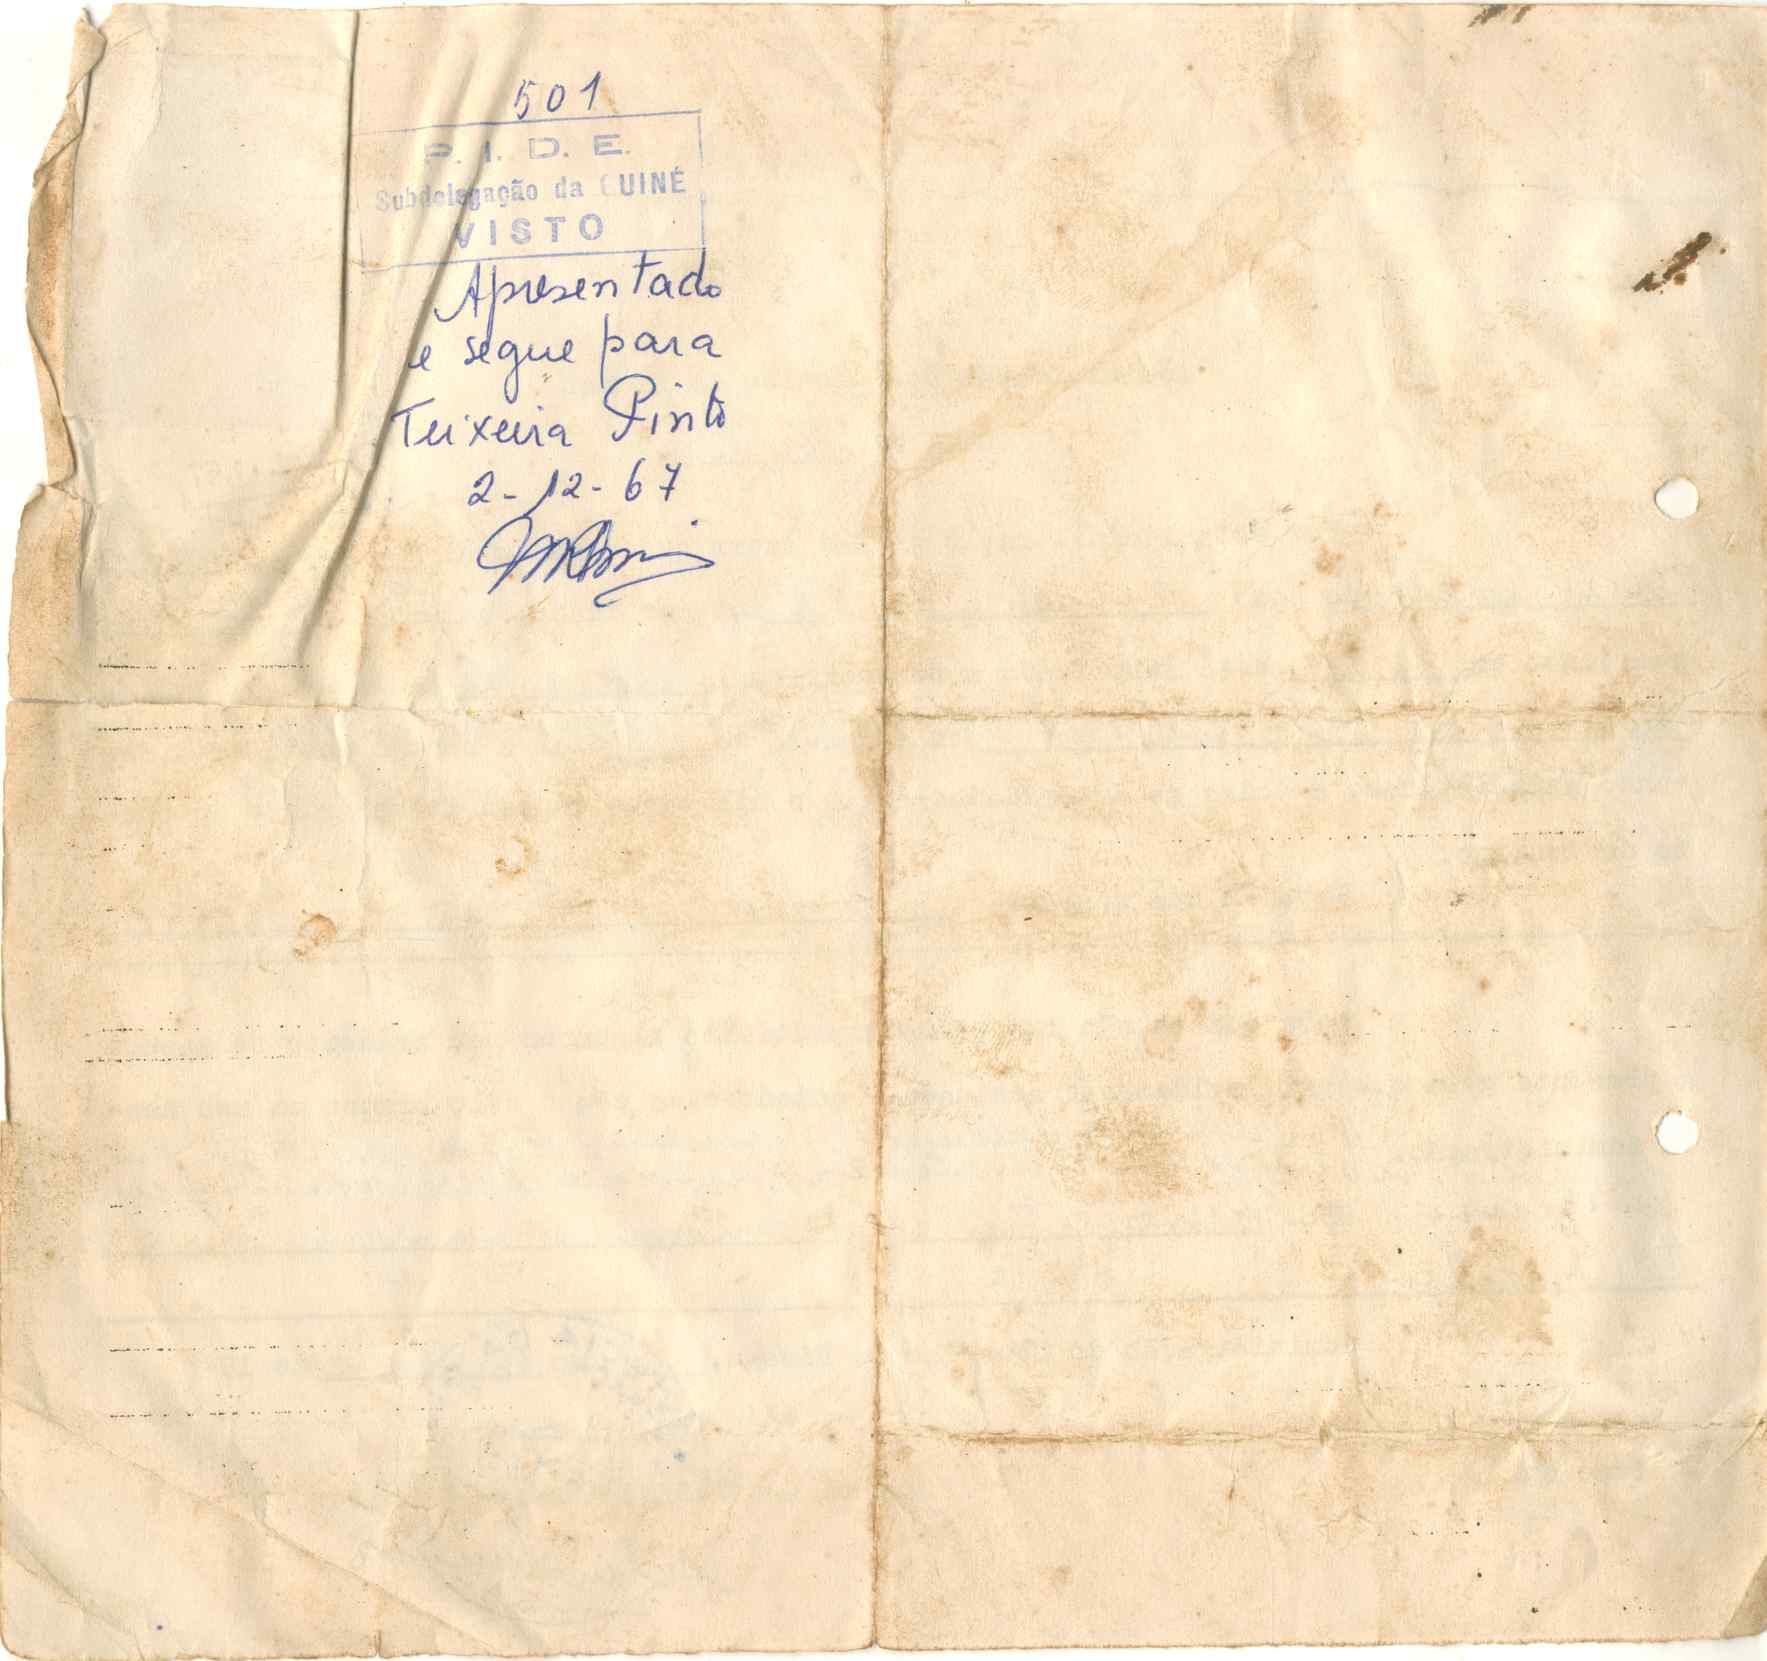 501
P. I. D. E.
Subdelegação da GUINÉ
VISTO
Apresentado
e segue para
Teixeira Pinto
2-12-67